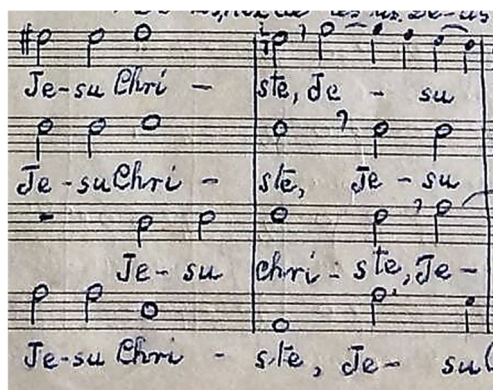 Je-su Chri - ste, Je - su
Je-su Chri - ste, Je-su
Je-su Chri-ste, Je-
Je-su Chri - ste, Je- su